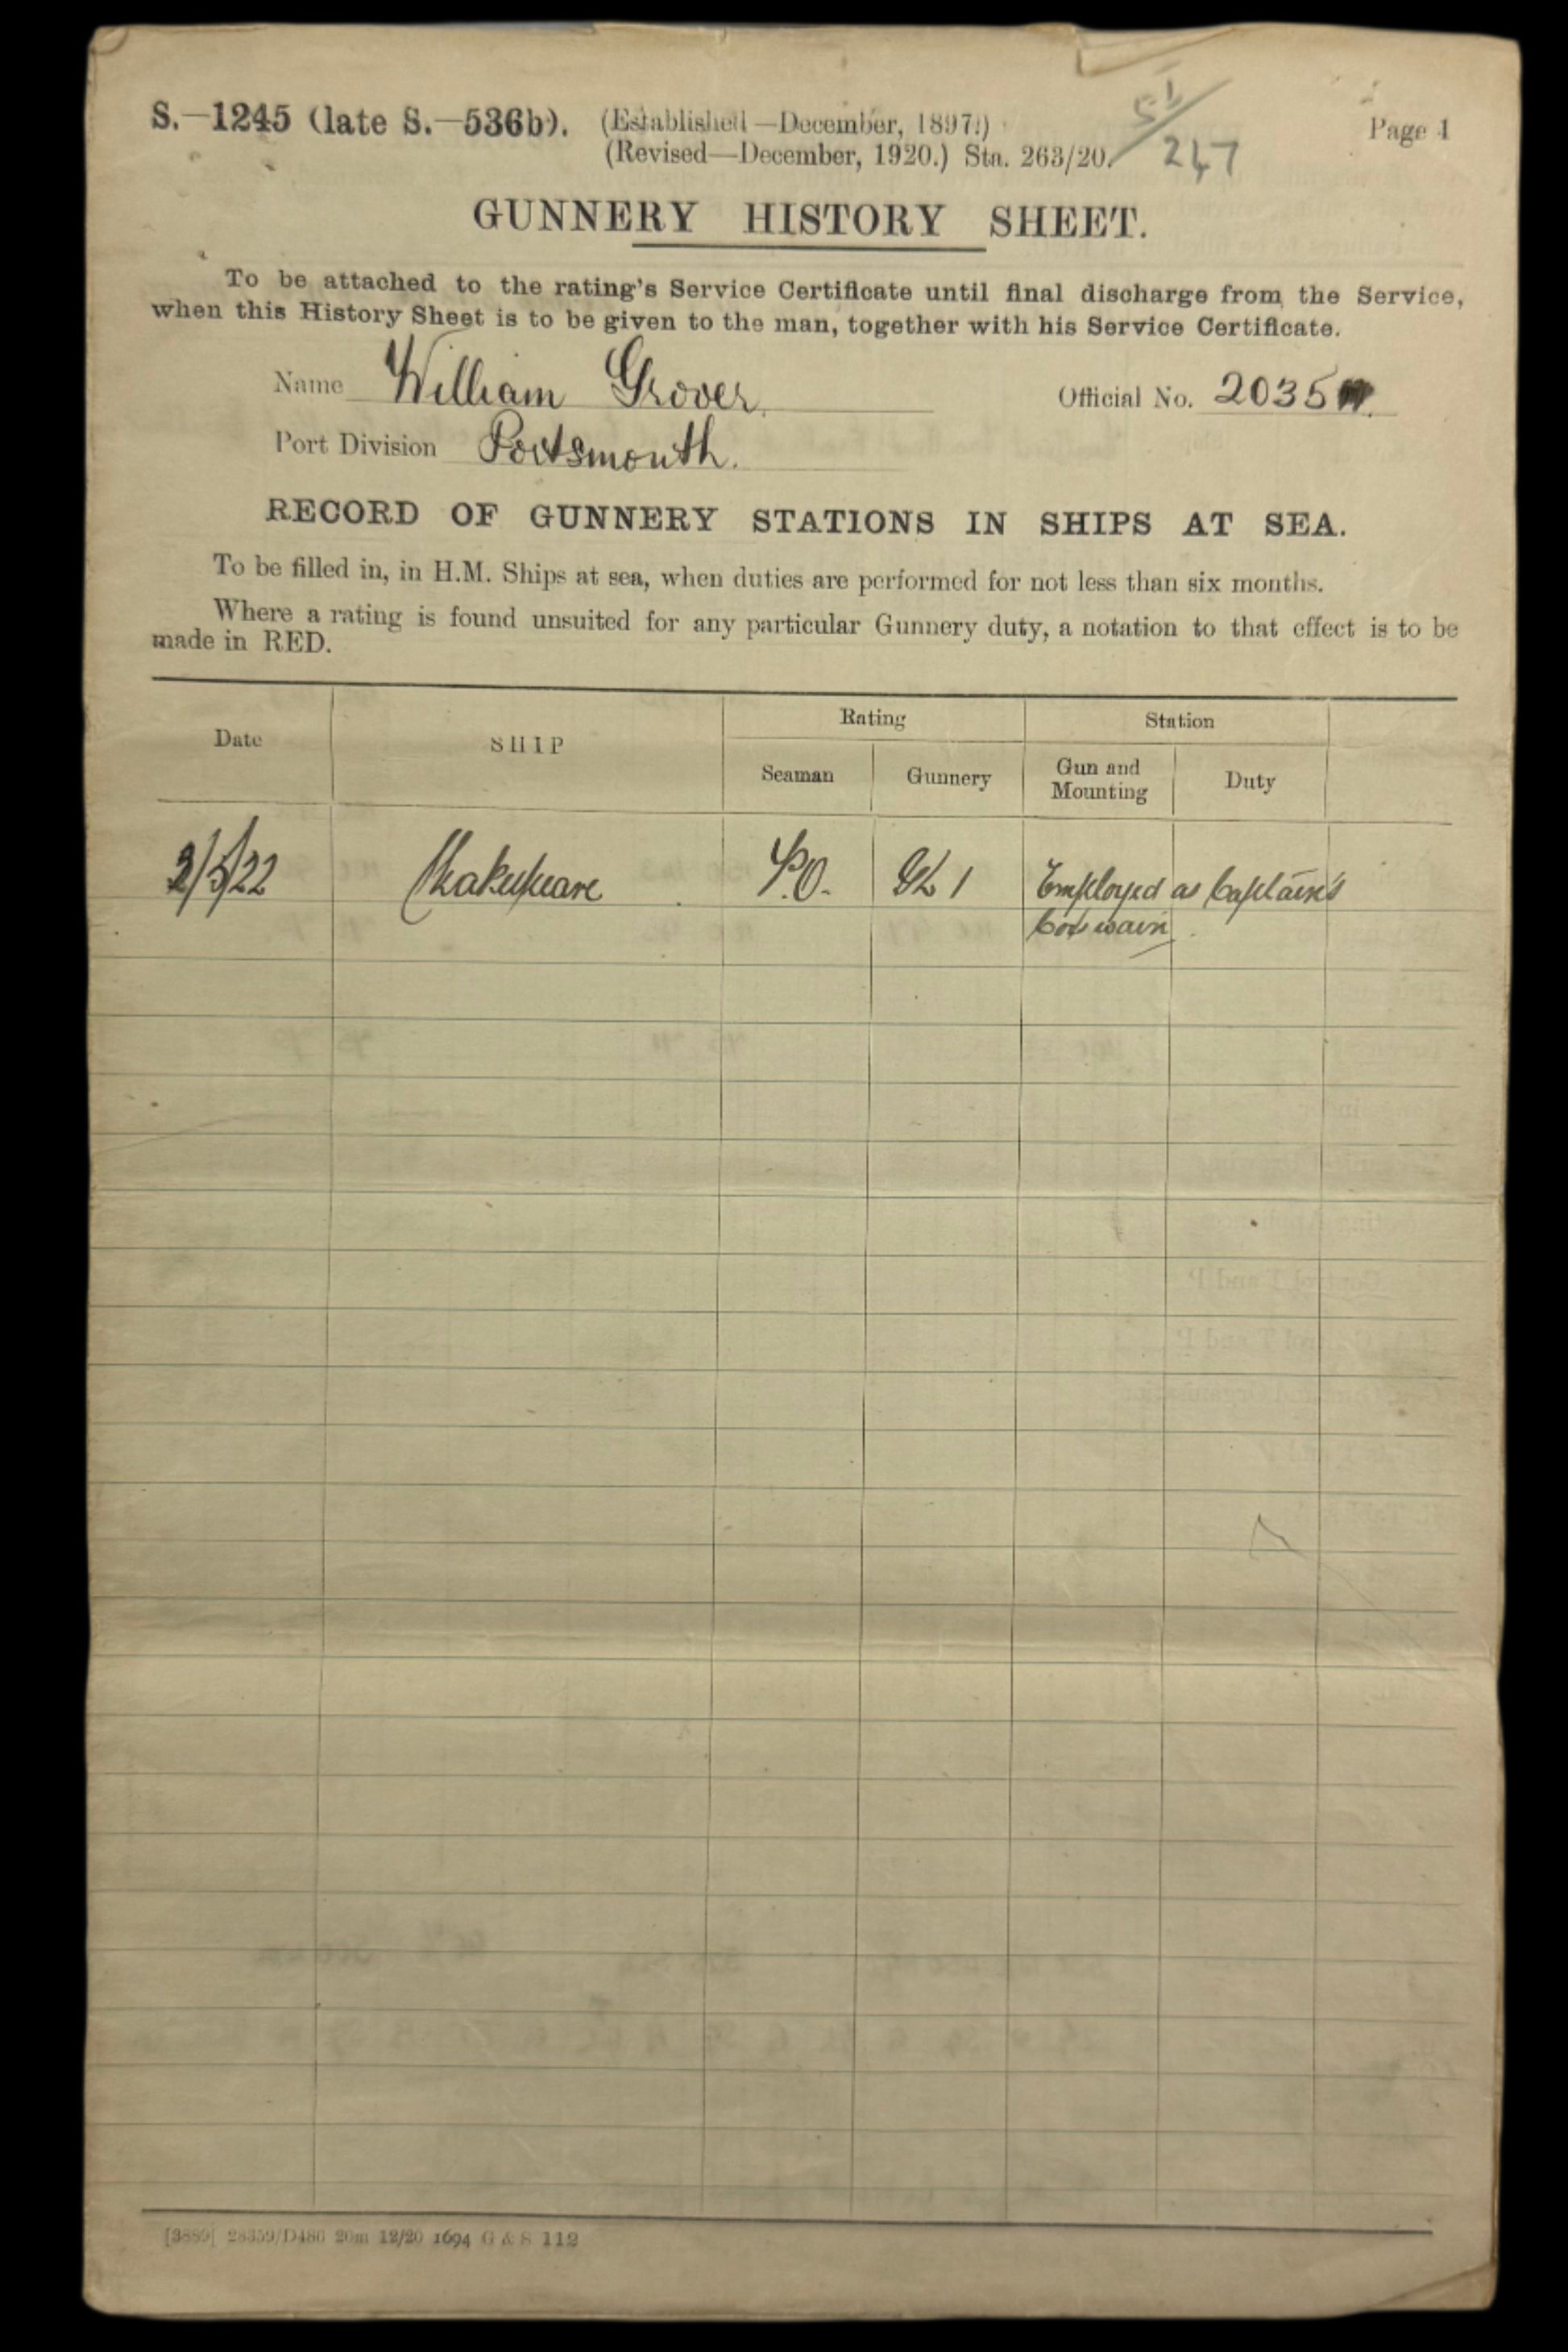 S.—1245 (late S.—536b). (Established—December, 1897.) Page 1
(Revised—December, 1920.) Sta. 263/20. 51/247
GUNNERY HISTORY SHEET.
To be attached to the rating's Service Certificate until final discharge from the Service,
when this History Sheet is to be given to the man, together with his Service Certificate.
Name William Grover. Official No. 2035
Port Division Portsmouth.
RECORD OF GUNNERY STATIONS IN SHIPS AT SEA.
To be filled in, in H.M. Ships at sea, when duties are performed for not less than six months.
Where a rating is found unsuited for any particular Gunnery duty, a notation to that effect is to be
made in RED.
Rating Station
Date SHIP
Seaman Gunnery Gun and Mounting Duty
/5/22 Shakespeare P.O. GL 1 Employed as Captain's
Coxswain
[3889] 28359/D486 20m 12/20 1694 G & S 112